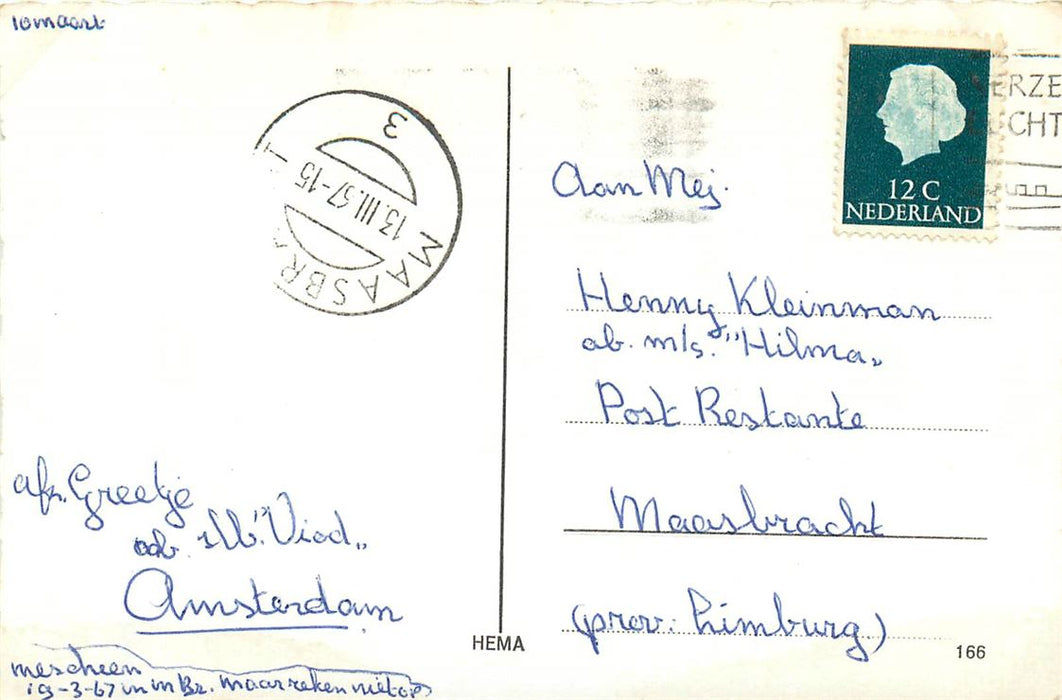 10 maart
MAASBR
3
13.III.67-15
ERZE
CHT
12 C
NEDERLAND
Aan Mej.
Henny Kleinman
ab. m/s. "Hilma„
Post Restante
Maasbracht
(prov. Limburg)
afz. Greetje
ab. "Viod„
Amsterdam
mescheen
19-3-67 in m Br. maar reken niet op
HEMA
166